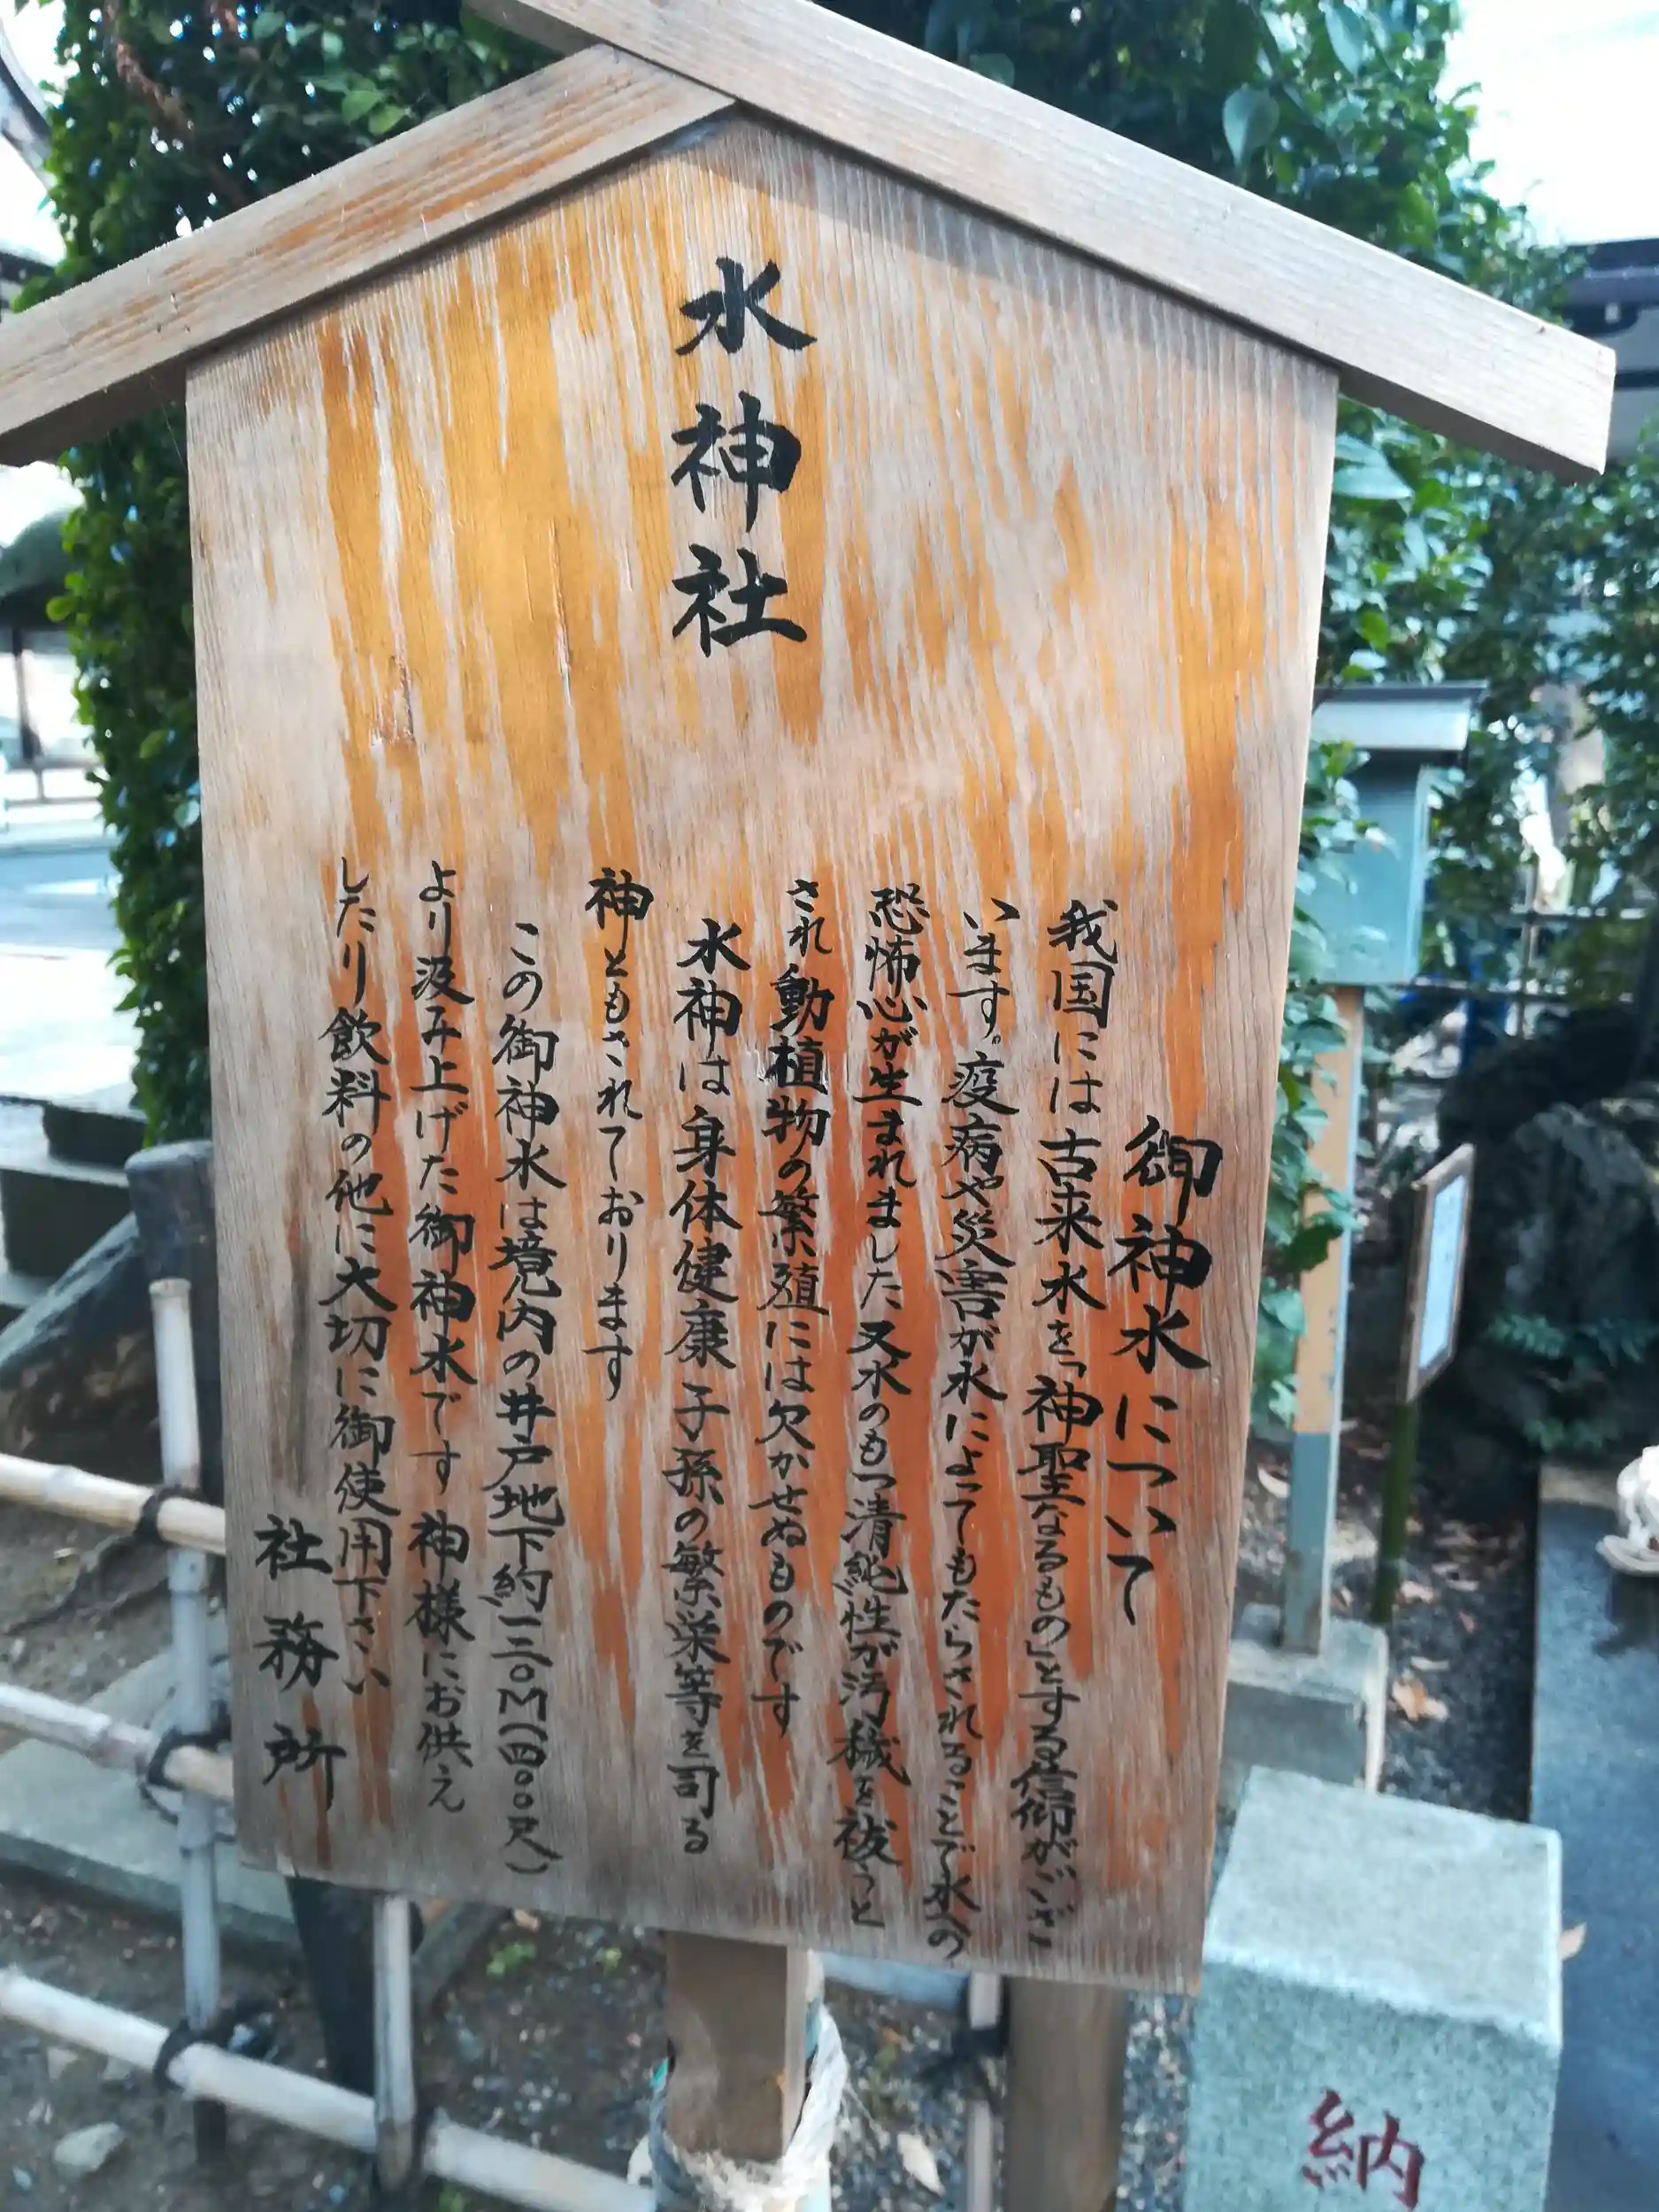 水神社
御神水について
我国には古来水を「神聖なるもの」とする信仰がござ
います。疫病や災害が水によってもたらされることで水への
恐怖心が生まれました又水のもつ清純性が汚穢を祓うと
され動植物の繁殖には欠かせぬものです
水神は身体健康子孫の繁栄等を司る
神ともされております
この御神水は境内の井戸地下約一二〇M(四〇〇尺)
より汲み上げた御神水です神様にお供え
したり飲料の他に大切に御使用下さい
社務所
納